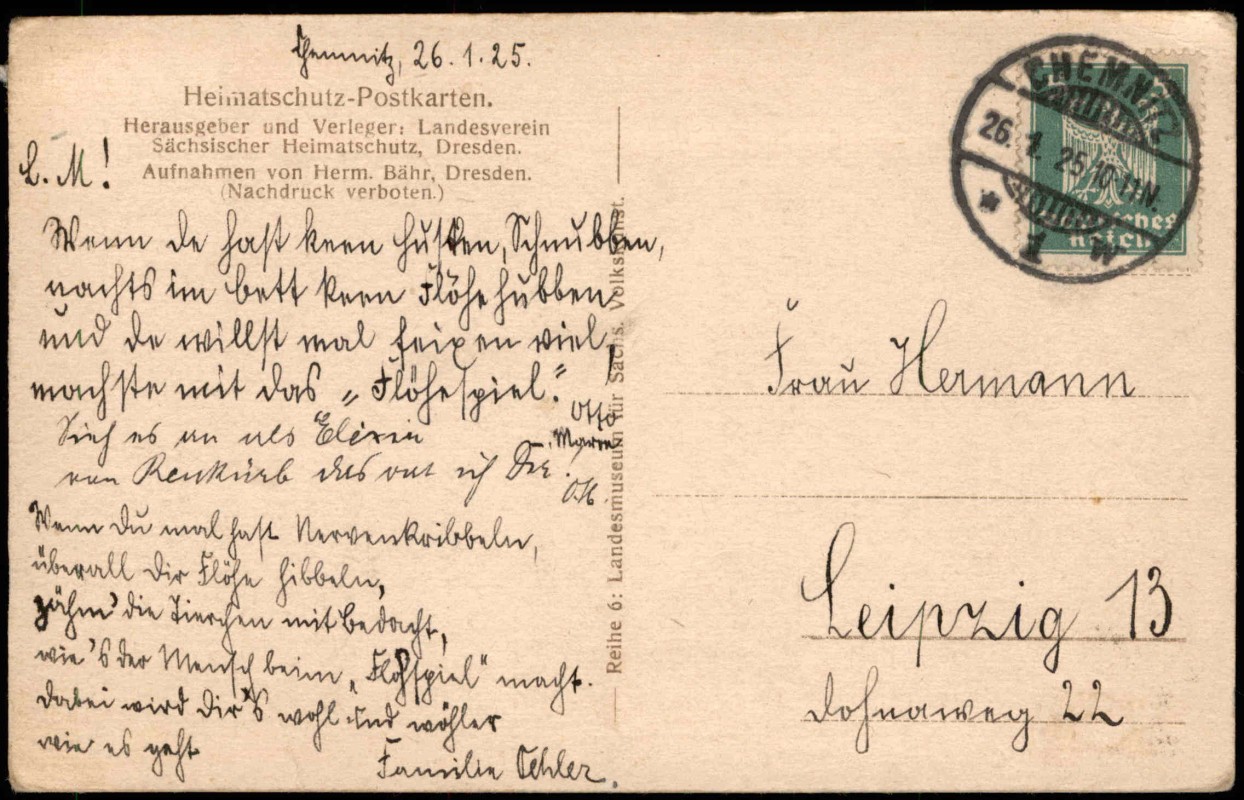 Chemnitz, 26.1.25.
Heimatschutz-Postkarten.
Herausgeber und Verleger: Landesverein
Sächsischer Heimatschutz, Dresden.
Aufnahmen von Herm. Bähr, Dresden.
(Nachdruck verboten.)
L. M!
Wenn de hast keen Husten, Schnubben,
nachts im bett keen Flöhe hubben
und de willst mal feixen viel,
machste mit das „Flöhespiel."!
Otto
Sieh es an als Elixir
von
das
ich Dir.
O.H.
Wenn Du mal hast Nervenkribbeln,
überall Dir Flöhe hibbeln,
zähm' die Tierchen mit Bedacht,
wie's der Mensch beim „Flohspiel" macht.
Dabei wird Dir's wohl und wöhler
wie es geht
Familie Oehler.
Reihe 6: Landesmuseum für Sächs. Volkskunst.
CHEMNITZ
26. 1. 25. 10-11 N.
* 1 w
Deutsches
Reich
Frau Hermann
Leipzig 13
Dohnaweg 22